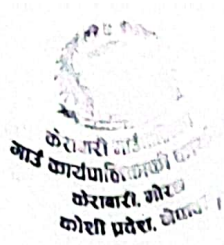 केराबारी गाउँ
गाउँ कार्यपालिकाको कार्या
केराबारी, मोरङ
कोशी प्रदेश, नेपाल